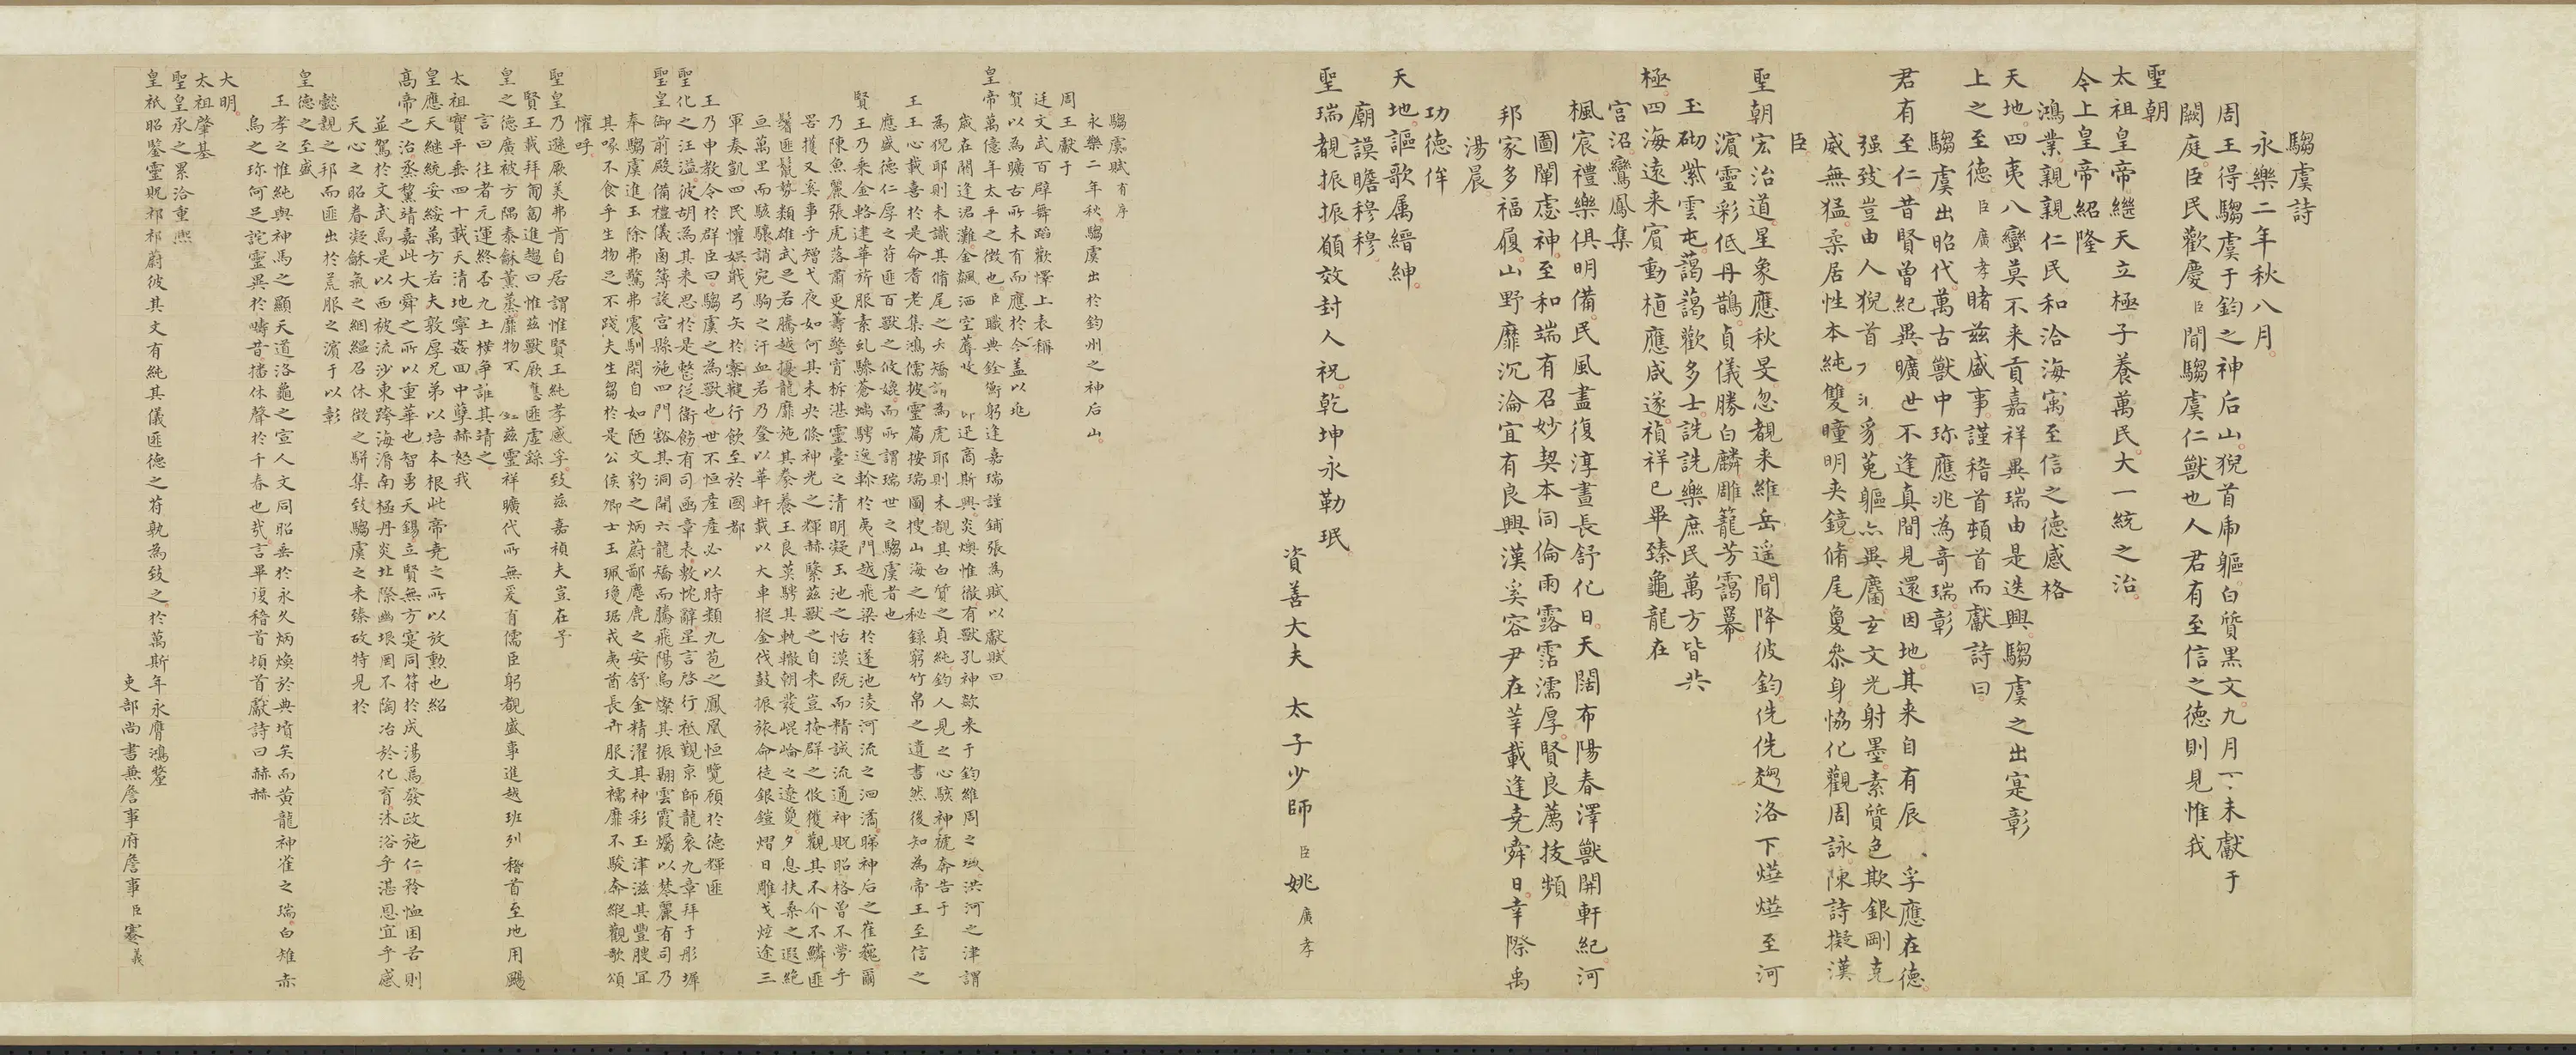 騶虞詩
永樂二年秋八月
周王得騶虞于鈞之神后山猊首虎軀白質黑文九月丁未獻于
闕庭臣民歡慶臣聞騶虞仁獸也人君有至信之德則見惟我
聖朝
太祖皇帝繼天立極子養萬民大一統之治
今上皇帝紹隆
鴻業親親仁民和洽海寓至信之德感格
天地四夷八蠻莫不来貢嘉祥異瑞由是迭興騶虞之出寔彰
上之至德臣廣孝睹兹盛事謹稽首頓首而獻詩曰
騶虞出昭代萬古獸中珎應兆為奇瑞彰
君有至仁昔賢曾紀異曠世不逢真間見還因地其来自有辰孚應在德
强致豈由人猊首豸菟軀亦異麕玄文光射墨素質色欺銀剛克
威無猛柔居性本純雙瞳明夹鏡脩尾敻叅身恊化觀周詠陳詩擬漢
臣
聖朝宏治道星象應秋旻忽覩来維岳遥聞降彼鈞侁侁趨洛下爗爗至河
濵霊彩低丹鵲貞儀勝白麟雕籠芳靄羃
玉砌紫雲屯藹藹歡多士詵詵樂庶民萬方皆共
極四海遠来賔動植應咸遂禎祥已畢臻龜龍在
宫沼鸞鳳集
楓宸禮樂俱明備民風盡復淳晝長舒化日天闊布陽春澤獸開軒紀河
圖闡虙神至和端有召妙契本同倫雨露霑濡厚賢良薦抜頻
邦家多福履山野靡沉淪宜有良興漢奚容尹在莘載逢堯舜日幸際禹
湯晨
功德侔
天地謳歌属縉紳
廟謨瞻穆穆
聖瑞覩振振願效封人祝乾坤永勒珉
資善大夫 太子少師 臣 姚 廣孝
騶虞賦有序
永樂二年秋騶虞出於鈞州之神后山
周王獻于
廷文武百辟舞蹈歡懌上表稱
賀以為曠古所未有而應於今盖以兆
皇帝萬億年太平之徵也臣職典銓衡躬逢嘉瑞謹鋪張為賦以獻賦曰
歲在閼逢涒灘金飆洒空蓐收 迅商斯興炎燠惟徹有獸孔神欻来于鈞維周之域洪河之津謂
為猊耶則未識其脩尾之夭矯謂為虎耶則未覩其白質之貞純鈞人見之心駭神褫奔告于
王王心載喜於是命耆老集鴻儒披靈篇按瑞圖搜山海之秘錄窮竹帛之遺書然後知為帝王至信之
應盛德仁厚之苻匪百獸之攸媲而所謂瑞世之騶虞者也
賢王乃乗金輅建華旂服素虬驂蒼螭騁逸軨於夷門越飛梁於蓬池淩河流之洄潏睇神后之崔巍爾
乃陳魚麗張虎落肅更籌警宵柝湛靈臺之清明凝玉池之恬漠既而精誠流通神貺昭格曾不勞乎
罟擭又奚事乎矰弋夜如何其未央倐神光之輝赫繄兹獸之自来豈掩群之攸獲觀其不介不鱗匪
鬐匪鬛勢類雄武之若騰越擾龍靡施其豢養王良莫騁其軌轍朝發崐崘之遠敻夕息扶桑之遐絶
亘萬里而駭驤誚宛駒之汗血若乃登以華軒載以大車摐金伐鼓振旅命徒銀鎧熠日雕戈烓途三
軍奏凱四民懽娯戢弓矢於櫜鞬行飲至於國都
王乃申教令於群臣曰騶虞之為獸也世不恒産産必以時類九苞之鳳凰恒覽顧於德輝匪
聖化之汪溢彼胡為其来思於是慗從衛飭有司函章表敷忱辭星言啓行祗覲京師龍衮九章拜于彤墀
聖皇御前殿備禮儀鹵簿設宫縣施四門豁其洞開六龍矯而騰飛陽烏燦其振翮雲霞爥以棽麗有司乃
奉騶虞進玉除弗驚弗震馴閑自如陋文豹之炳蔚鄙麈鹿之安舒金精濯其神彩玉津滋其豐腴冝
其喙不食乎生物之不踐夫生芻於是公侯卿士玉珮瓊琚戎夷酋長卉服文襦靡不駿奔縱觀歌頌
懽呼
聖皇乃遜厥美弗肯自居謂惟賢王純孝感孚致兹嘉禎夫豈在予
賢王載拜匍匐進趨曰惟兹獸厥應匪虚繇
皇之德廣被方隅泰龢薰蒸靡物不 兹靈祥曠代所無爰有儒臣躬覩盛事進越班列稽首至地用颺
言曰往者元運終否九土横争誰其靖之
太祖寶平垂四十載天清地寧姦回中孽赫怒我
皇應天継統妥綏萬方若夫敦厚兄弟以培本根此帝堯之所以放勲也紹
髙帝之治烝黧靖嘉此大舜之所以重華也智勇天錫立賢無方寔同符於成湯焉發政施仁矜恤困苦則
並駕於文武焉是以西被流沙東跨海漘南極丹炎北際幽垠罔不陶冶於化育沐浴乎湛恩宜乎感
天心之昭眷凝龢氣之絪緼召休徴之駢集致騶虞之来臻故特見於
懿親之邦而匪出於荒服之濵于以彰
皇德之至盛
王孝之惟純與神馬之顯天道洛龜之宣人文同昭垂於永久炳煥於典墳矣而黄龍神雀之瑞白雉赤
烏之珎何足詫靈異於疇昔播休聲於千春也哉言畢復稽首頓首獻詩曰赫赫
大明
太祖肇基
聖皇承之累洽重熙
皇祇昭鑒靈貺祁祁蔚彼其文有純其儀匪德之苻孰為致之於萬斯年永膺鴻釐
吏部尚書兼詹事府詹事臣蹇義